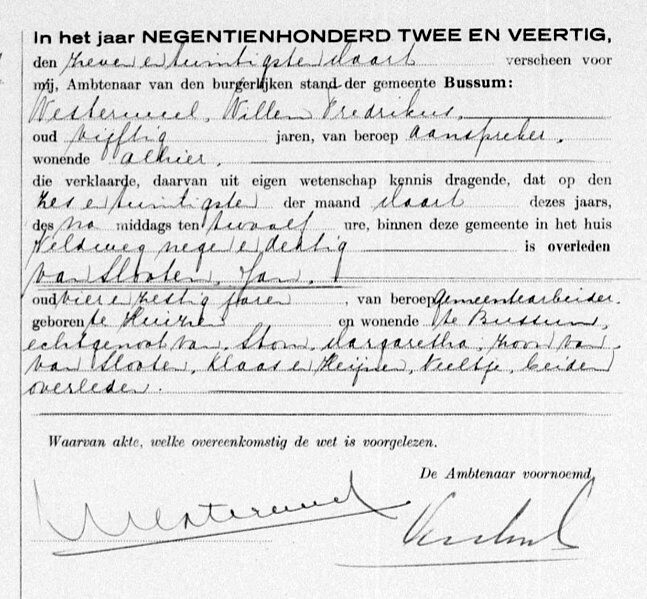 In het jaar NEGENTIENHONDERD TWEE EN VEERTIG,
den zeven en twintigsten Maart verscheen voor
mij, Ambtenaar van den burgerlijken stand der gemeente Bussum:
Westerweel, Willem Fredrikus,
oud vijftig jaren, van beroep aanspreker,
wonende alhier,
die verklaarde, daarvan uit eigen wetenschap kennis dragende, dat op den
zes en twintigsten der maand Maart dezes jaars,
des na middags ten twaalf ure, binnen deze gemeente in het huis
Veldweg negen en dertig is overleden
van Slooten, Jan,
oud vier en zestig jaren, van beroep gemeentearbeider.
geboren te Huizen en wonende te Bussum,
echtgenoot van Margaretha, zoon van
van Slooten, Klaas en Neeltje, beiden
overleden.
Waarvan akte, welke overeenkomstig de wet is voorgelezen.
De Ambtenaar voornoemd,
Westerweel